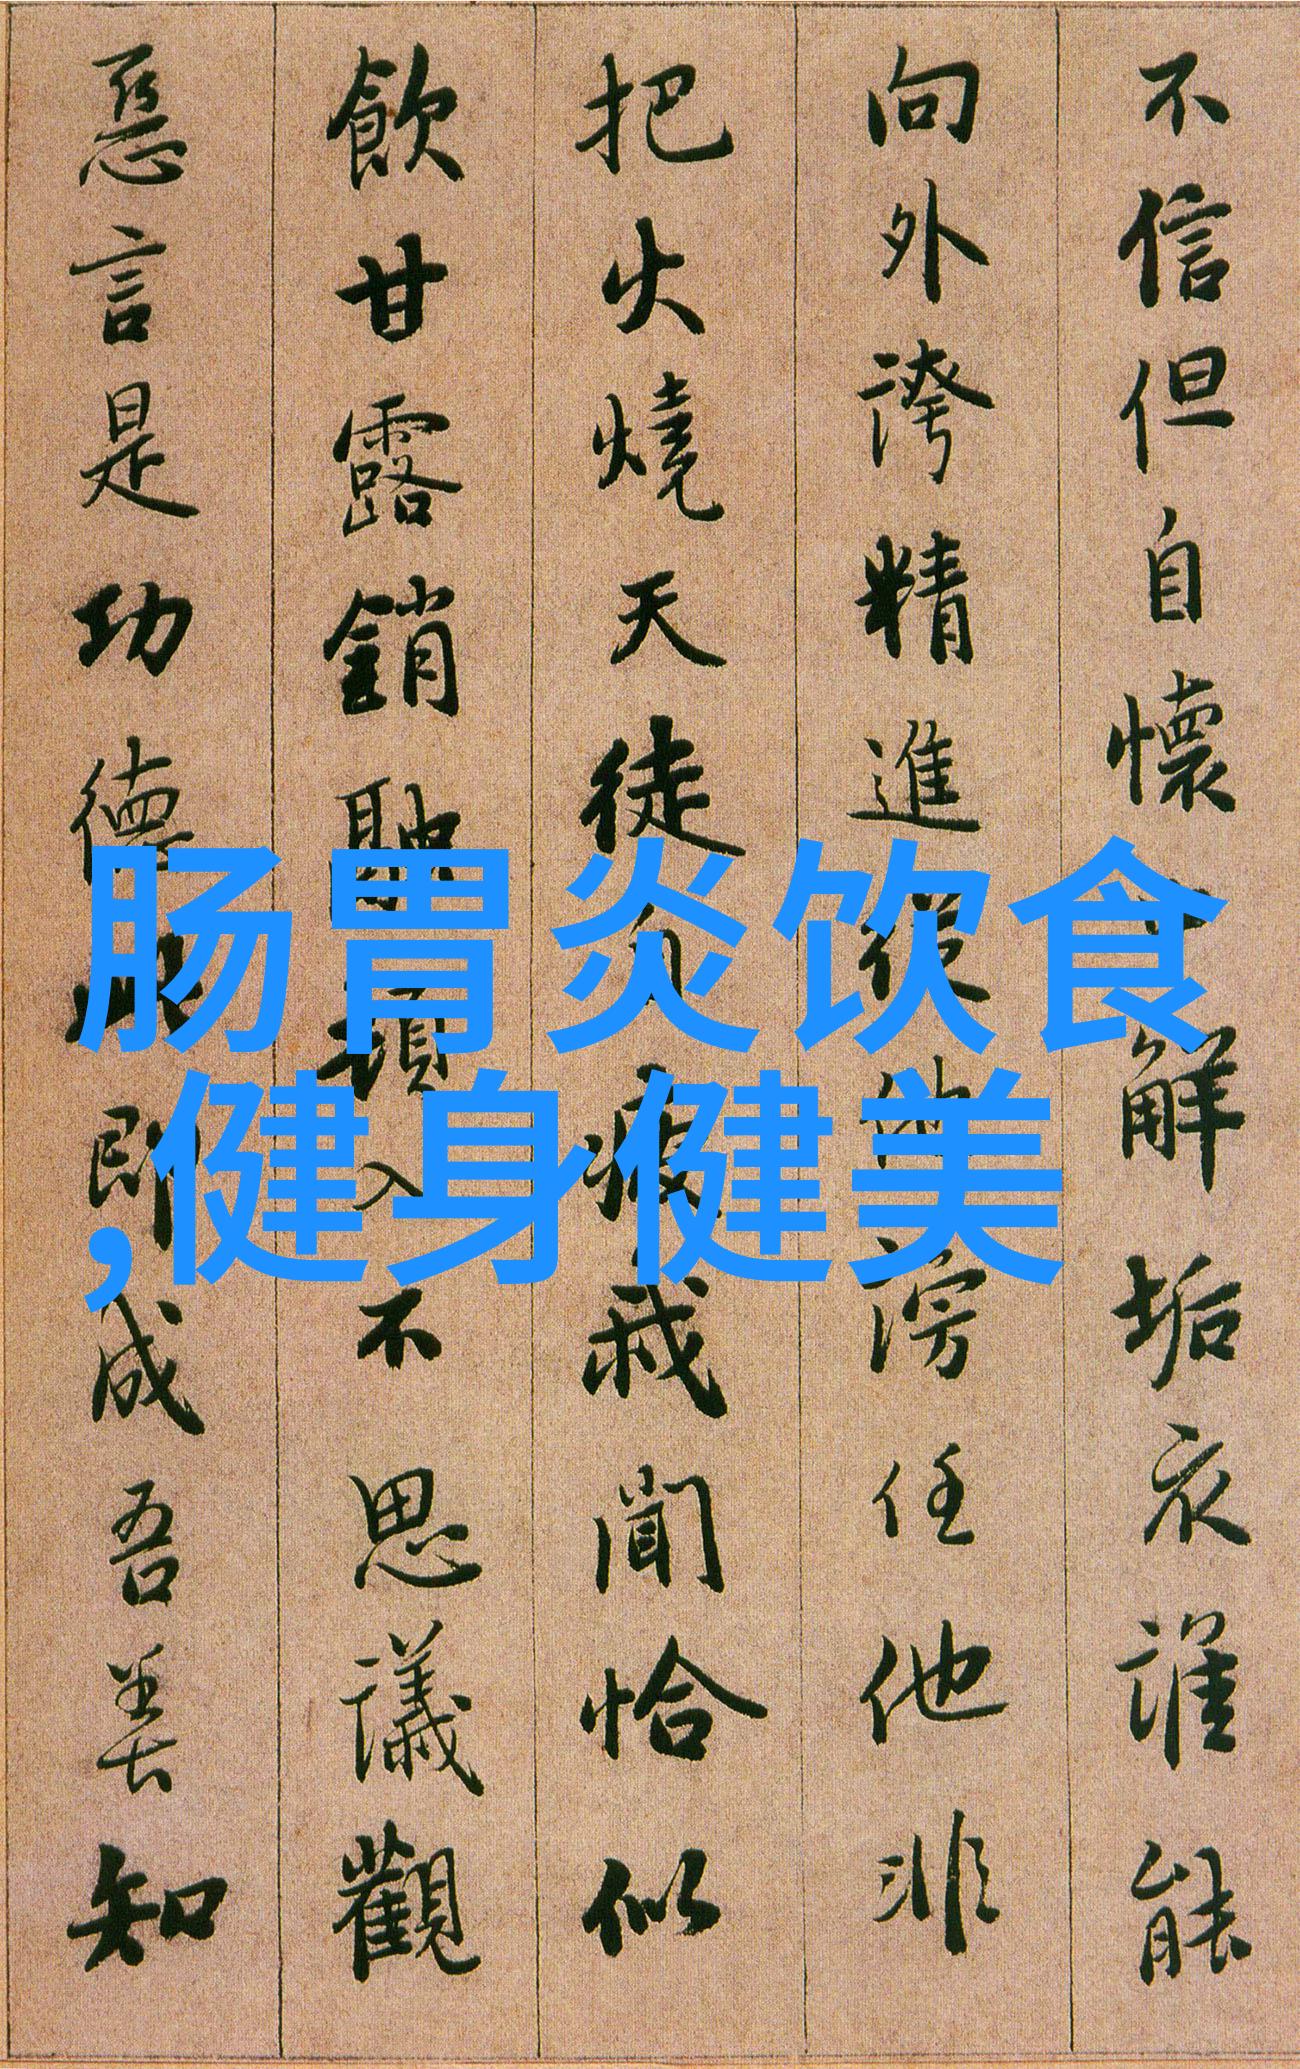 不信但自懷解垢衣誰能
向外誇精進從他謗任他非
把火燒天徒自疲我聞恰似
飲甘露銷融頓入不思議觀
惡言是功德此即成吾善知
肠胃炎饮食
,健身健美